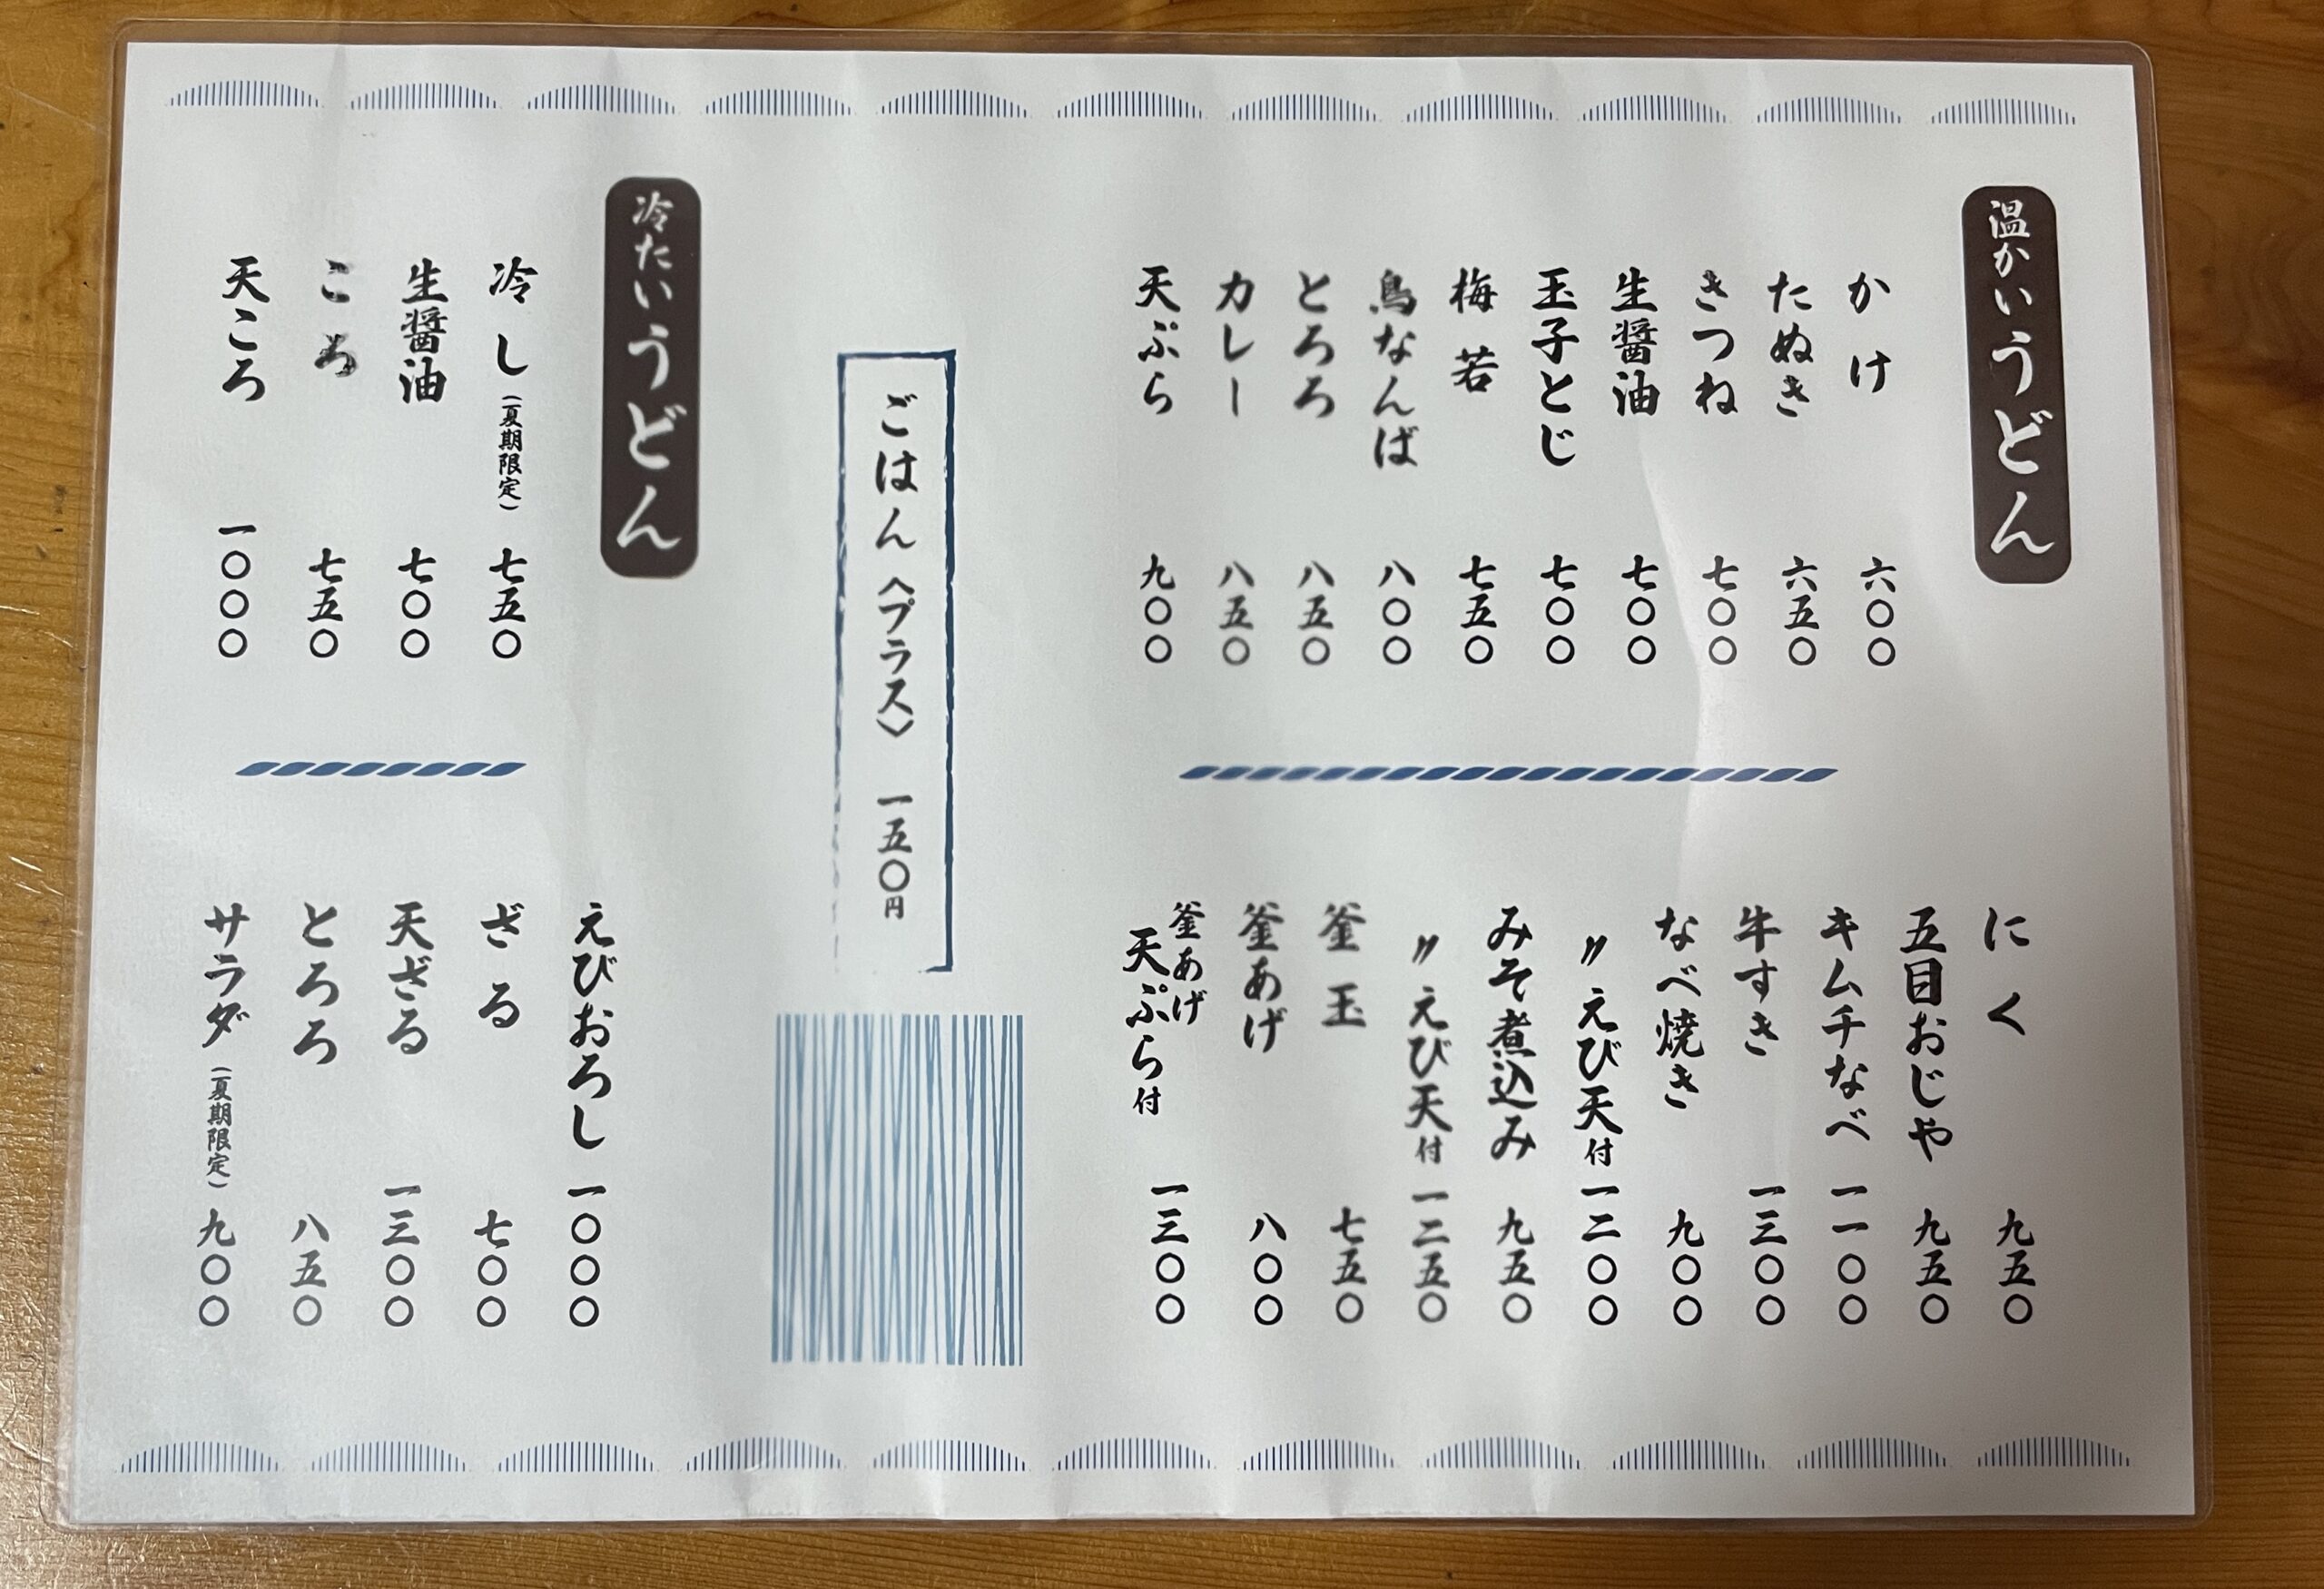 温かいうどん
かけ 六〇〇
たぬき 六五〇
きつね 七〇〇
生醤油 七〇〇
玉子とじ 七〇〇
梅若 七五〇
鳥なんば 八〇〇
とろろ 八五〇
カレー 八五〇
天ぷら 九〇〇
にく 九五〇
五目おじや 九五〇
キムチなべ 一一〇〇
牛すき 一三〇〇
なべ焼き 九〇〇
〃えび天付 一二〇〇
みそ煮込み 九五〇
〃えび天付 一二五〇
釜玉 七五〇
釜あげ 八〇〇
釜あげ
天ぷら付 一三〇〇
ごはん〈プラス〉 一五〇円
冷たいうどん
冷し(夏期限定) 七五〇
生醤油 七〇〇
ころ 七五〇
天ころ 一〇〇〇
えびおろし 一〇〇〇
ざる 七〇〇
天ざる 一三〇〇
とろろ 八五〇
サラダ(夏期限定) 九〇〇